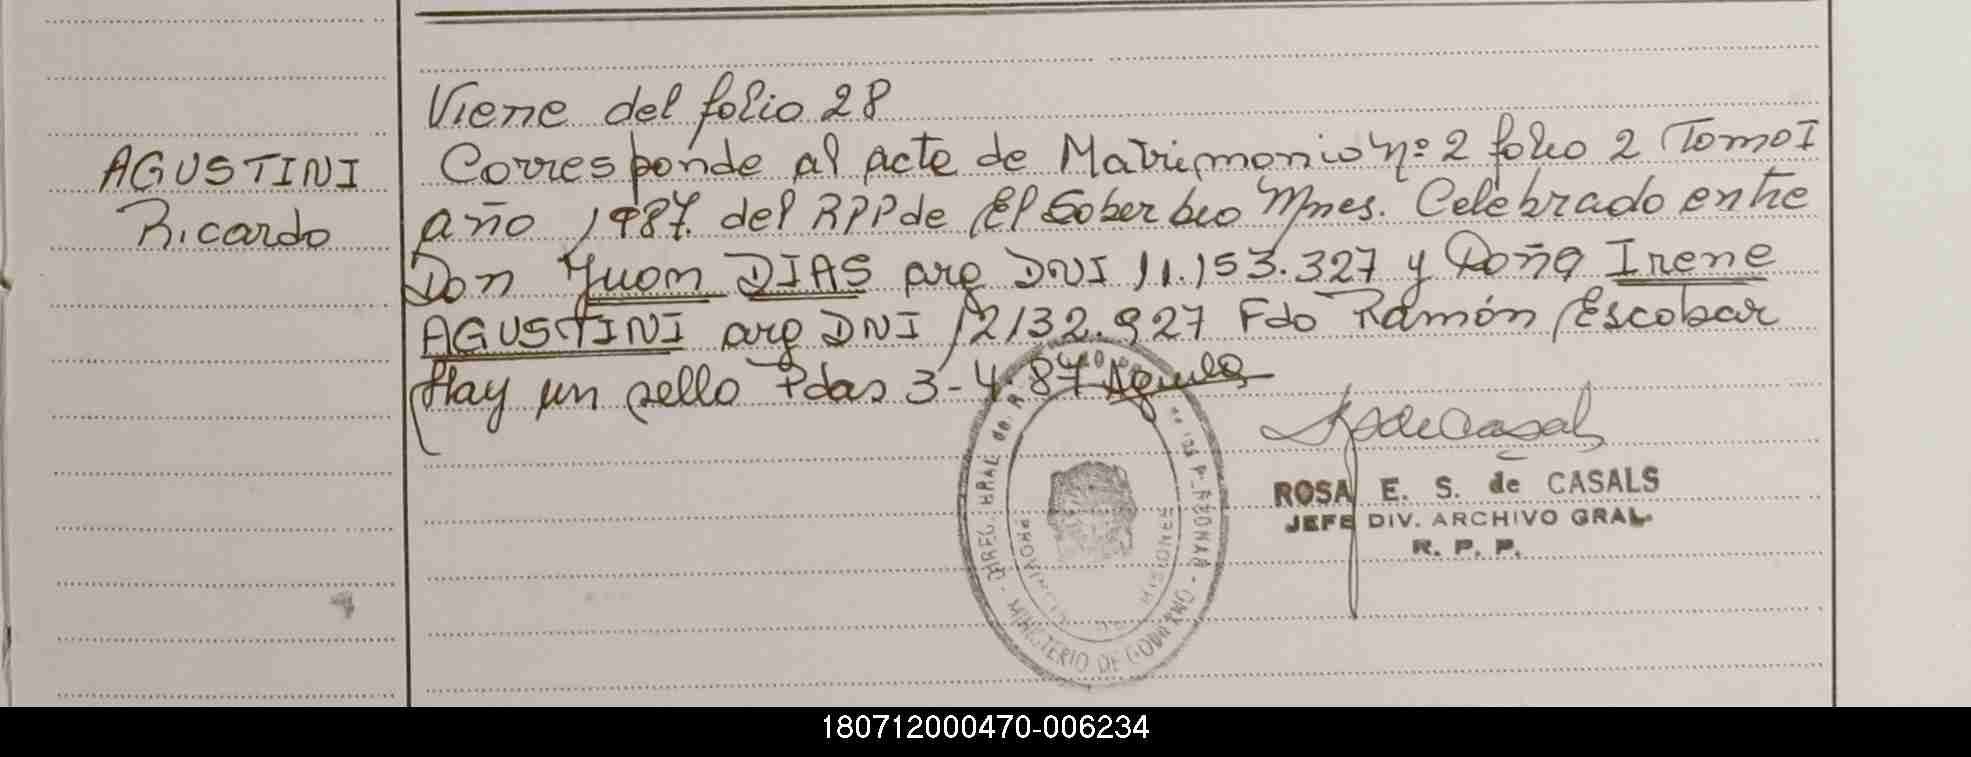 Viene del folio 28
AGUSTINI
Ricardo
Corresponde al acta de Matrimonio nº 2 folio 2 Tomo I
año 1987 del RPP de El Soberbio Mnes. Celebrado entre
Don Juan DIAS arg DNI 11.153.327 y Doña Irene
AGUSTINI arg DNI 12132.927 Fdo Ramón Escobar
Hay un sello Pdas 3-4-87
ROSA E. S. de CASALS
JEFE DIV. ARCHIVO GRAL.
R. P. P.
DIREC. GRAL de
MINISTERIO DE GOBIERNO
PROVINCIA DE MISIONES
180712000470-006234